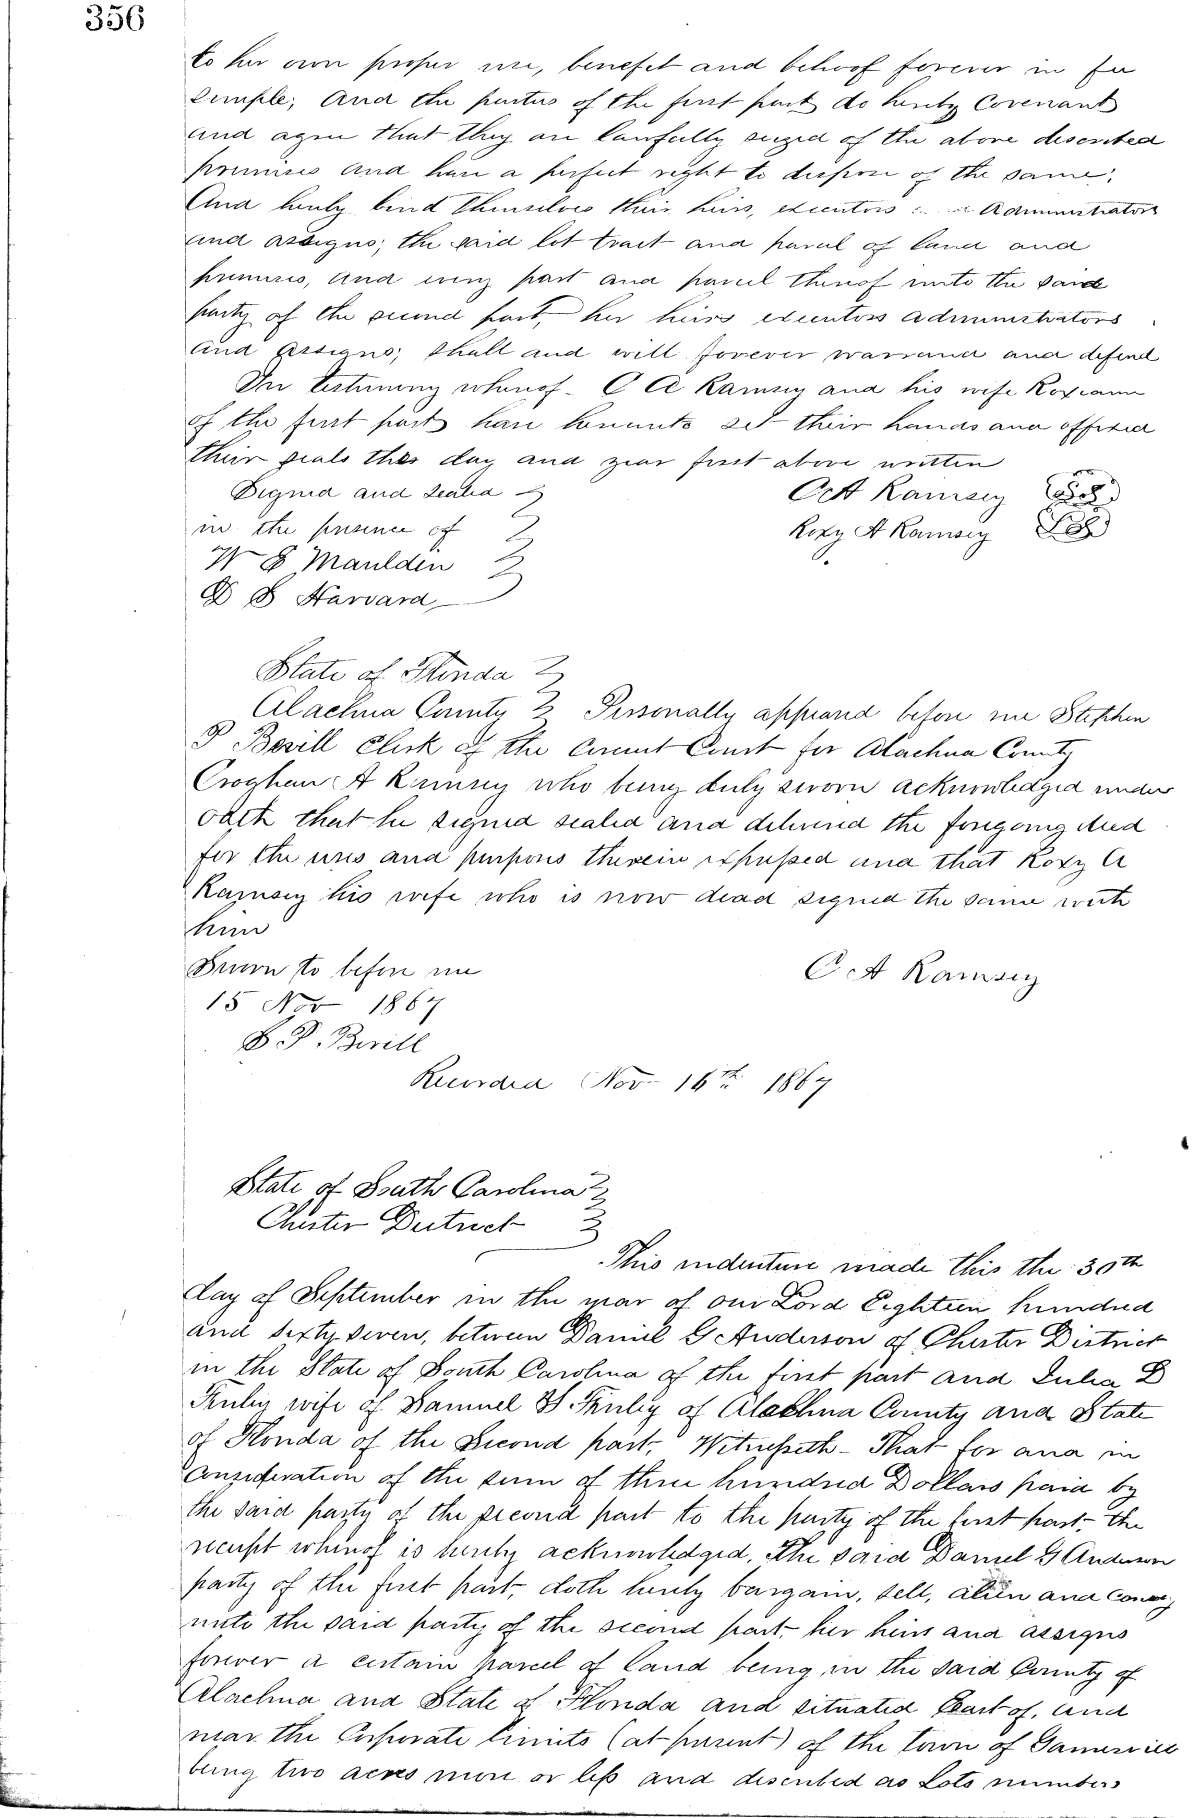 356
to her own proper use, benefit and behoof forever in fee
Simple; And the parties of the first part do hereby Covenant
and agree that they are lawfully seized of the above described
premises and have a perfect right to dispose of the same;
And hereby bind themselves their heirs, executors Administrators
and assigns; the said lot tract and parcel of land and
premises, and every part and parcel thereof unto the said
party of the second part, her heirs executors administrators
and assigns; shall and will forever warrand and defend
In testimony whereof C A Ramsey and his wife Roxeann
of the first part have hereunto set their hands and affixed
their seals the day and year first above written
Signed and Sealed
in the presence of
W S Maulden
D S Harvard
C A Ramsey
Roxy A Ramsey
State of Florida
Alachua County Personally appeared before me Stephen
P Bevill Clerk of the Circuit Court for Alachua County
Croghan A Ramsey who being duly sworn acknowledged under
oath that he signed sealed and delivered the foregoing deed
for the uses and purposes therein expressed and that Roxy A
Ramsey his wife who is now dead signed the same with
him
Sworn to before me
C A Ramsey
15 Nov 1867
S. P. Bevill
Recorded Nov 16th 1867
State of South Carolina
Chester District
This indenture made this the 30th
day of September in the year of our Lord Eighteen hundred
and Sixty Seven, between Daniel G Anderson of Chester District
in the State of South Carolina of the first part and Julia D
wife of Samuel of Alachua County and State
of Florida of the Second part, Witnesseth - That for and in
Consideration of the sum of three hundred Dollars paid by
the said party of the second part to the party of the first part, the
receipt whereof is hereby acknowledged, the said Daniel G Anderson
party of the first part, doth hereby bargain, sell, alien and convey
unto the said party of the second part, her heirs and assigns
forever a certain parcel of land being in the said County of
Alachua and State of Florida and situated East of, and
near the Corporate limits (at present) of the town of Gainesville
being two acres more or less and described as Lots numbers